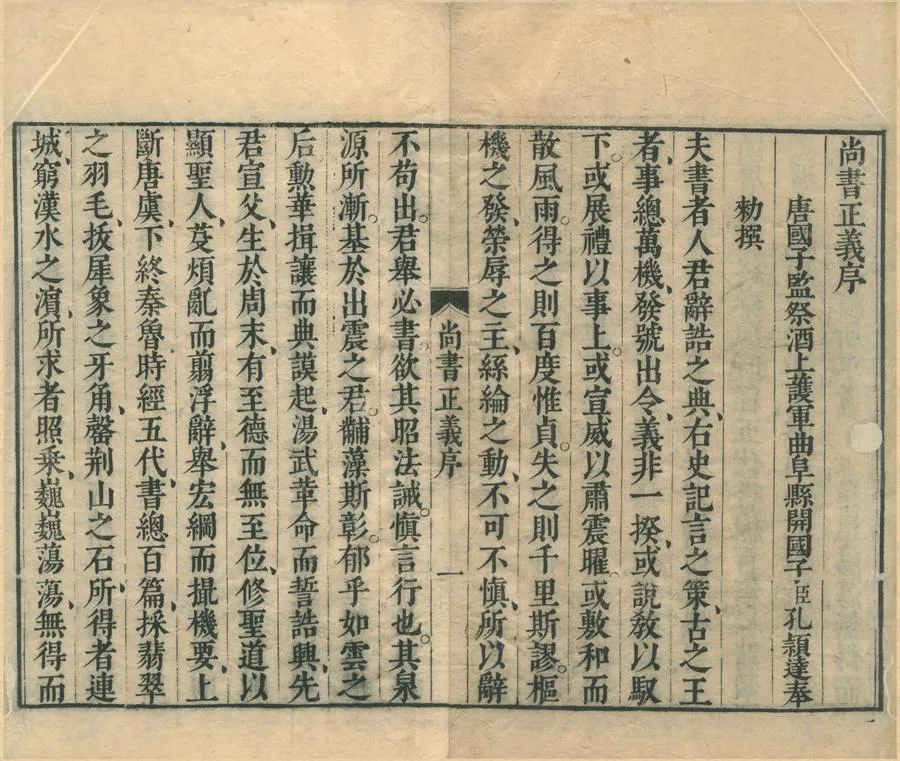 尚書正義序
唐國子監祭酒上護軍曲阜縣開國子臣孔穎達奉
勑撰
夫書者人君辭誥之典、右史記言之策、古之王
者、事總萬機、發號出令、義非一揆、或說教以馭
下。或展禮以事上。或宣威以肅震曜。或敷和而
散風雨。得之則百度惟貞。失之則千里斯謬。樞
機之發、榮辱之主、絲綸之動、不可不慎、所以辭
尚書正義序 一
不苟出。君舉必書、欲其昭法誡。慎言行也。其泉
源所漸。基於出震之君。黼藻斯彰。郁乎如雲之
后、勳華揖讓而典謨起、湯武革命而誓誥興、先
君宣父、生於周末、有至德而無至位、修聖道以
顯聖人、芟煩亂而翦浮辭、舉宏綱而撮機要、上
斷唐虞、下終秦魯、時經五代、書總百篇、採翡翠
之羽毛、拔犀象之牙角、罄荆山之石、所得者連
城、窮漢水之濵、所求者照乗、巍巍蕩蕩、無得而